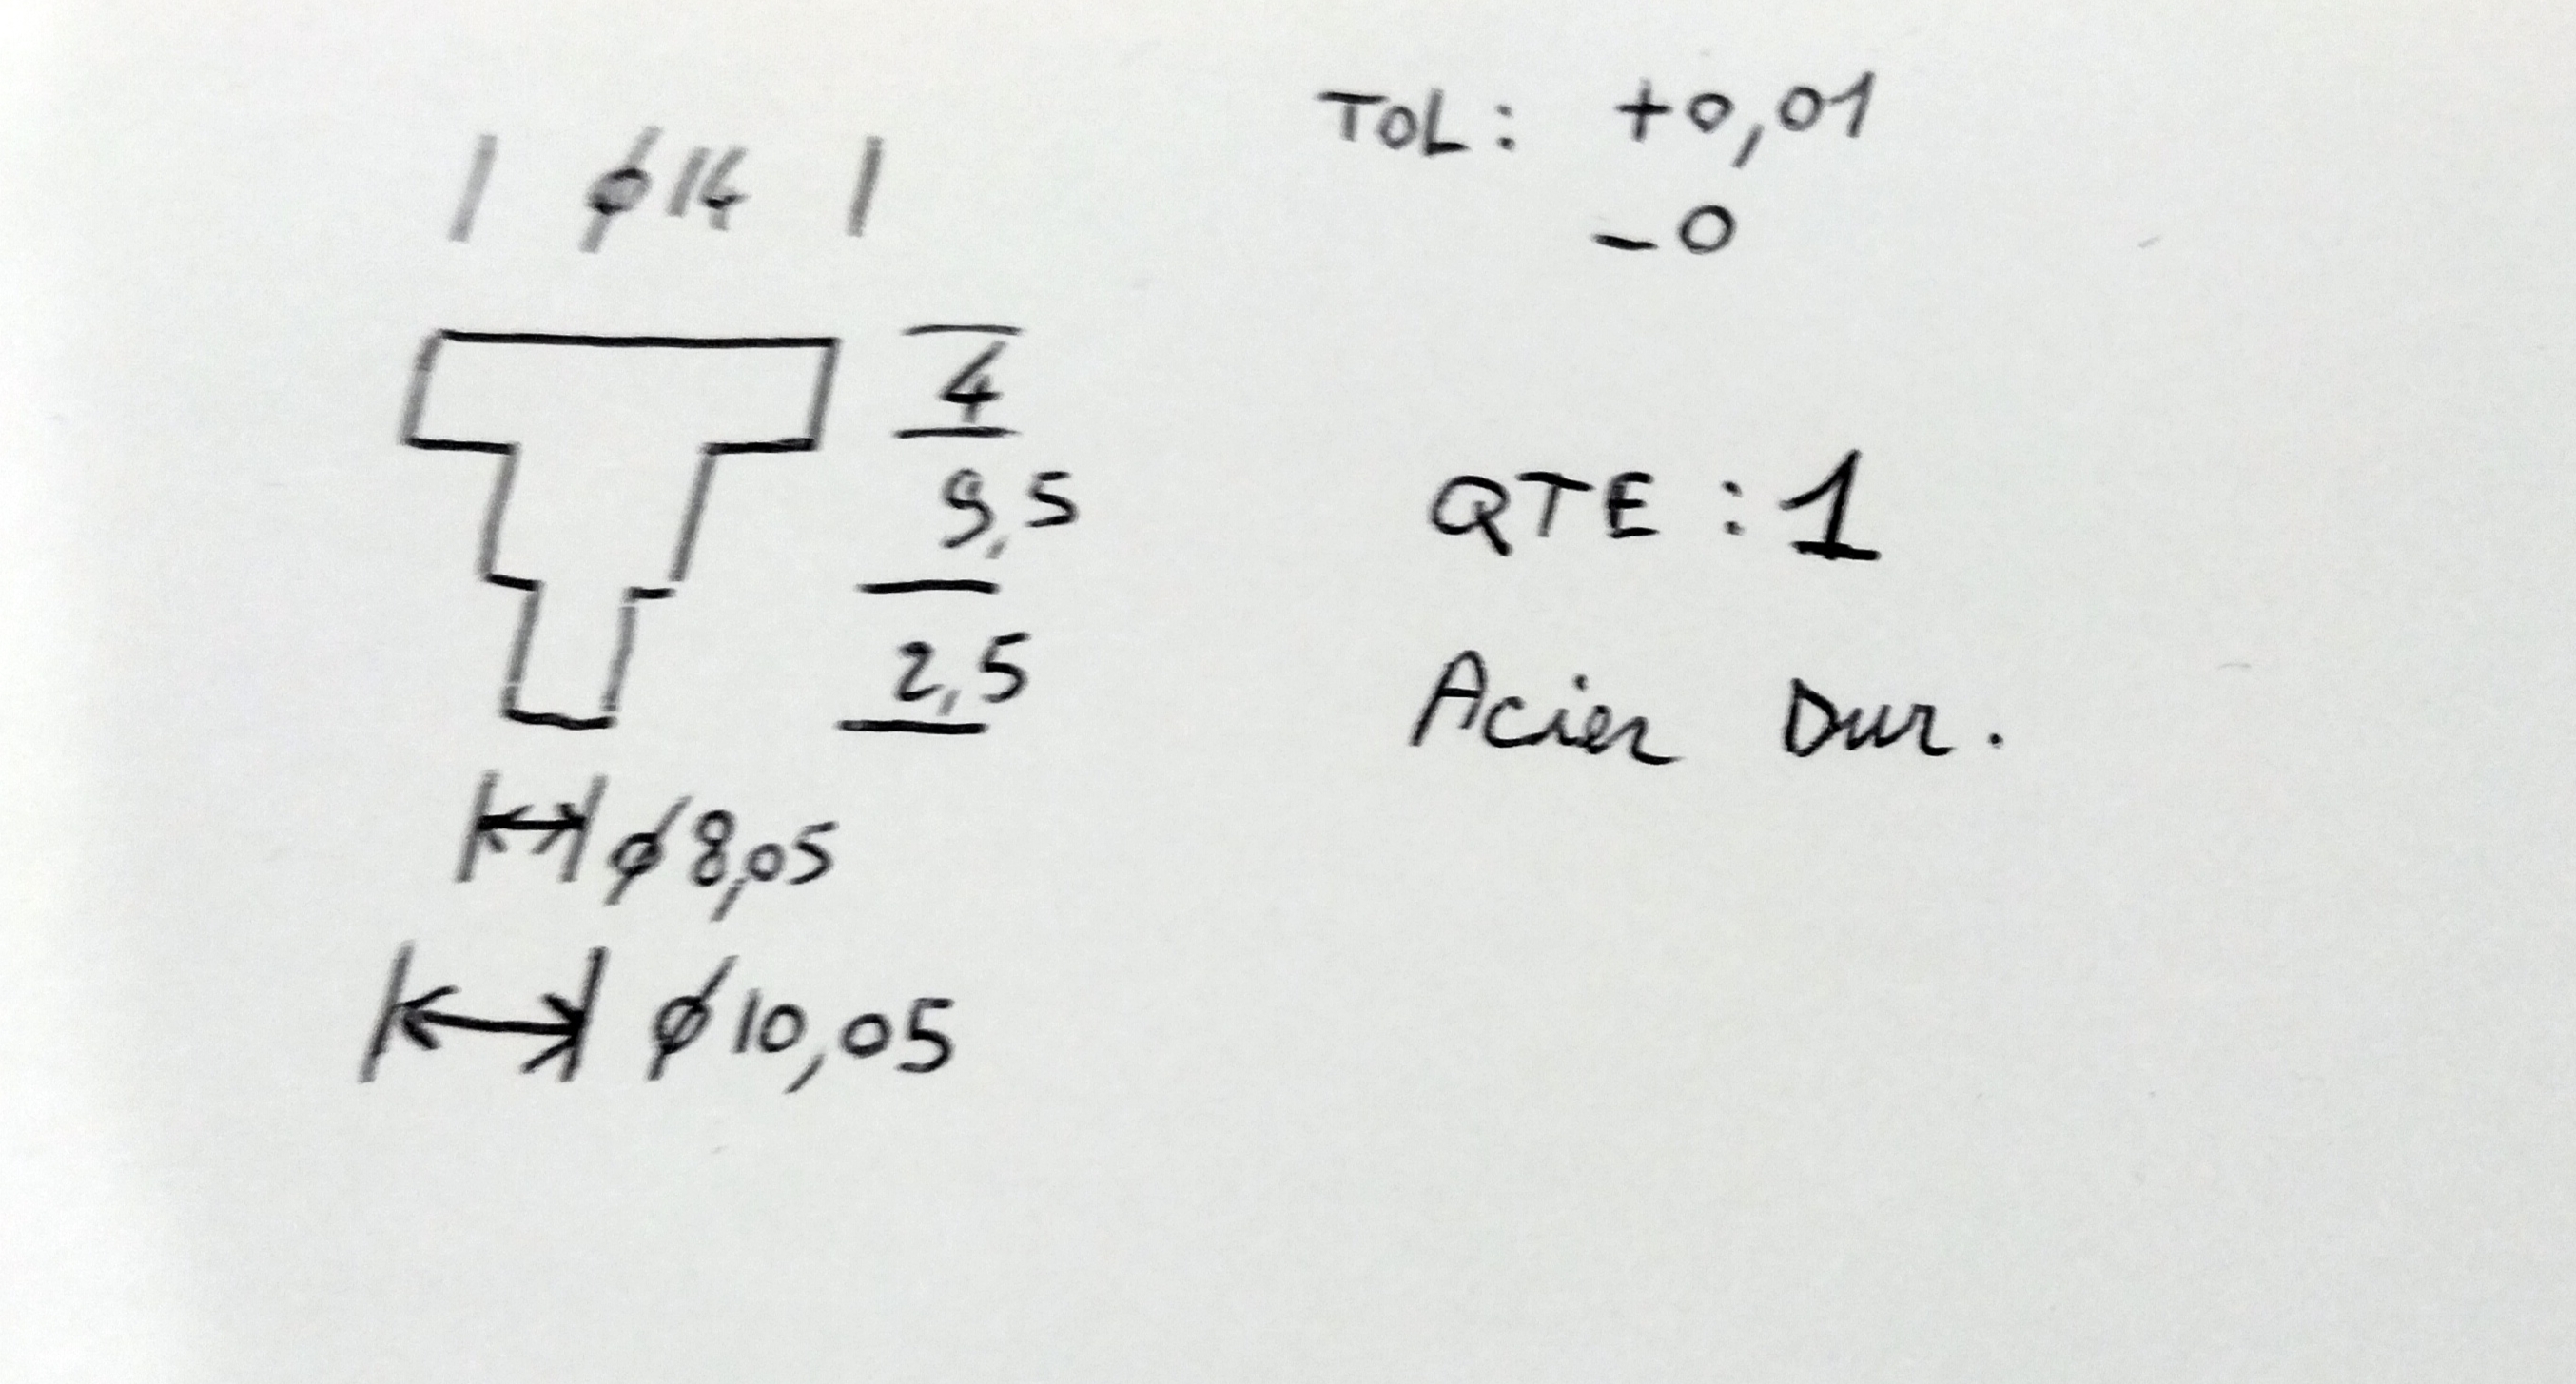 TOL: +0,01
-0
ϕ14
4
9,5
2,5
QTE : 1
Acier Dur.
ϕ8,05
ϕ10,05